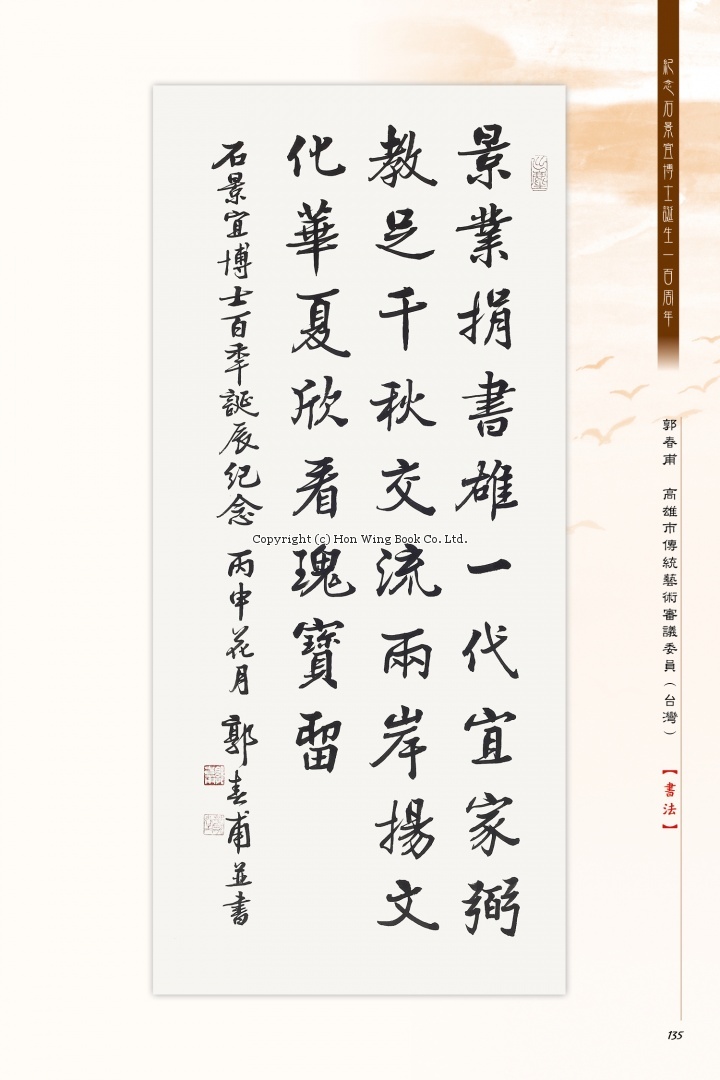 紀念石景宜博士誕生一百周年
郭春甫 高雄市傳統藝術審議委員（台灣）
【書法】
景業捐書雄一代宜家弼
教足千秋交流兩岸揚文
化華夏欣看瑰寶留
石景宜博士百年誕辰紀念 丙申花月 郭春甫並書
Copyright (c) Hon Wing Book Co. Ltd.
135